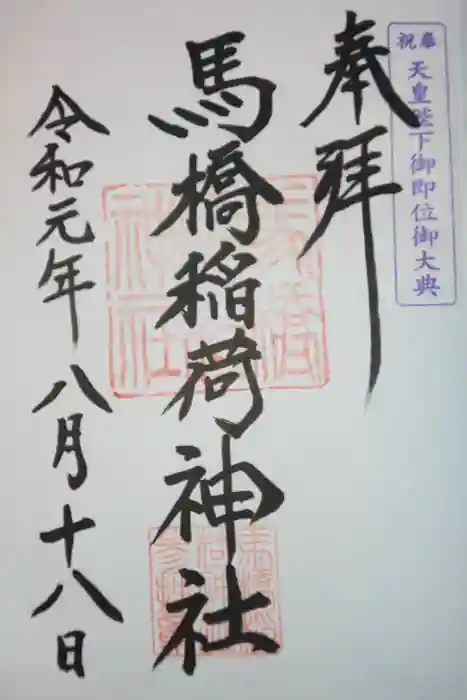 奉祝
天皇陛下御即位御大典
奉拝
馬橋稲荷神社
令和元年八月十八日